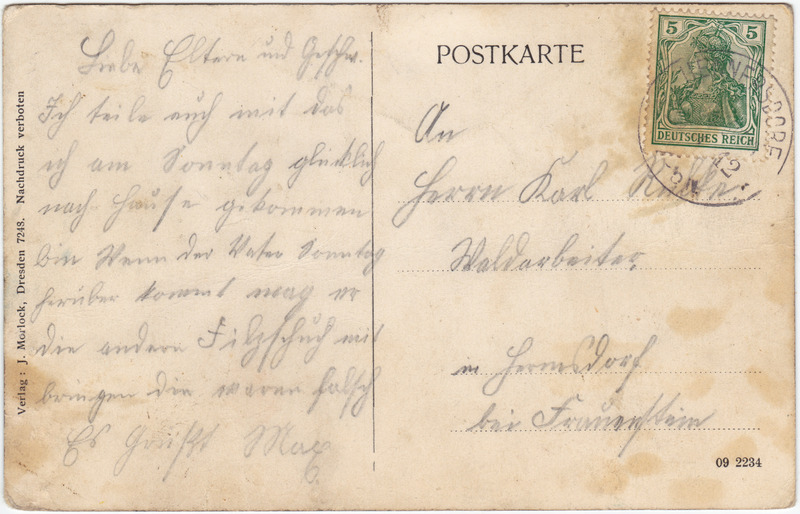 Liebe Eltern und Geschw.
Ich teile euch mit das
ich am Sonntag glücklich
nach Hause gekommen
bin Wenn der Vater Sonntag
herüber kommt mag er
die andern Filzschuh mit
bringen die waren falsch
Es Grüßt Max
Verlag: J. Morlock, Dresden 7248. Nachdruck verboten
POSTKARTE
5 5
DEUTSCHES REICH
An
Herrn Karl
Waldarbeiter
in Hermsdorf
bei Frauenstein
09 2234